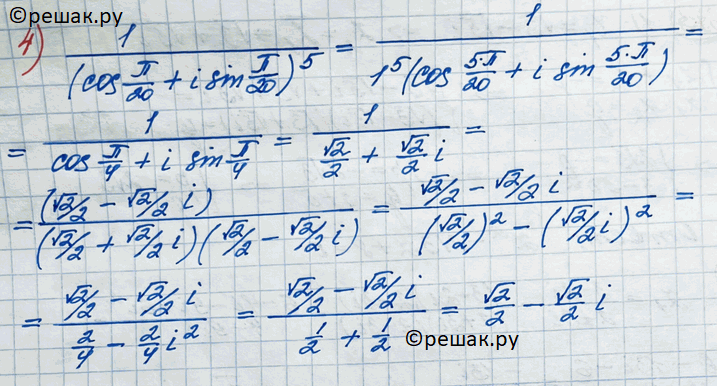 ©решак.ру
4) 1/(cos π/20 + i sin π/20)^5 = 1/(1^5 (cos 5·π/20 + i sin 5·π/20)) =
= 1/(cos π/4 + i sin π/4) = 1/(√2/2 + √2/2 i) =
= (√2/2 - √2/2 i)/((√2/2 + √2/2 i)(√2/2 - √2/2 i)) = (√2/2 - √2/2 i)/((√2/2)^2 - (√2/2 i)^2) =
= (√2/2 - √2/2 i)/(2/4 - 2/4 i^2) = (√2/2 - √2/2 i)/(1/2 + 1/2) = √2/2 - √2/2 i
©решак.ру